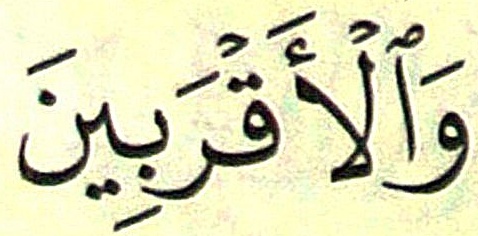 وَٱلْأَقْرَبِينَ